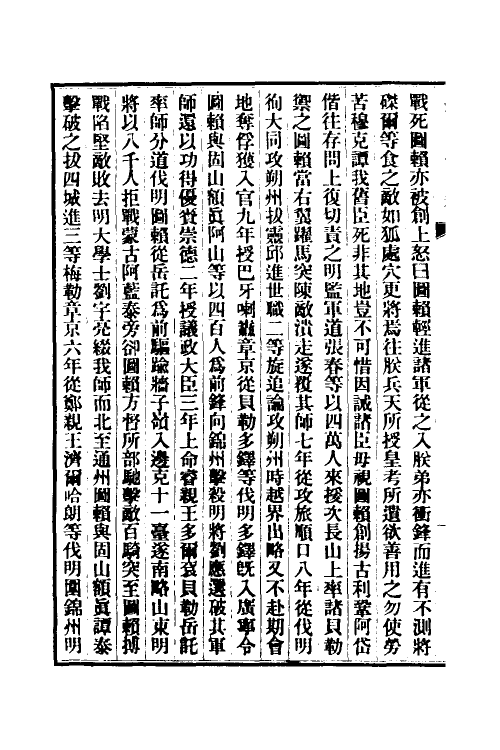 戰死圖賴亦被創上怒曰圖賴輕進諸軍從之入朕弟亦衝鋒而進有不測將
磔爾等食之敵如狐處穴更將焉往朕兵天所授皇考所遺欲善用之勿使勞
苦穆克譚我舊臣死非其地豈不可惜因誡諸臣毋視圖賴創揚古利鞏阿岱
偕往存問上復切責之明監軍道張春等以四萬人來援次長山上率諸貝勒
禦之圖賴當右翼躍馬突陳敵潰走遂覆其師七年從攻旅順口八年從伐明
徇大同攻朔州拔靈邱進世職二等旋追論攻朔州時越界出略又不赴期會
地奪俘獲入官九年授巴牙喇纛章京從貝勒多鐸等伐明多鐸旣入廣寧令
圖賴與固山額眞阿山等以四百人爲前鋒向錦州擊殺明將劉應選破其軍
師還以功得優賚崇德二年授議政大臣三年上命睿親王多爾袞貝勒岳託
率師分道伐明圖賴從岳託爲前驅踰牆子嶺入邊克十一臺遂南略山東明
將以八千人拒戰蒙古阿藍泰旁卻圖賴方督所部馳擊敵百騎突至圖賴搏
戰陷堅敵敗去明大學士劉宇亮綴我師而北至通州圖賴與固山額眞譚泰
擊破之拔四城進三等梅勒章京六年從鄭親王濟爾哈朗等伐明圍錦州明